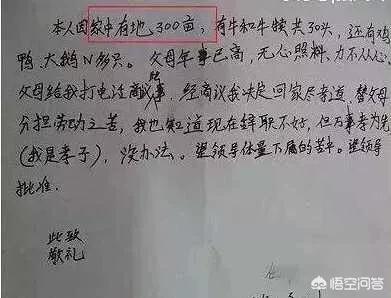 本人因家中有地300亩，有牛和牛犊共30头，还有鸡
鸭、大鹅N多只。父母年事已高，无心照料，力不从心。
父母给我打电话商议事，经商议我决定回家尽孝道，替父母
分担劳动之苦，我也知道现在辞职不好，但百事孝为先
(我是孝子)，没办法。望领导体量下属的苦中。望领导
批准。
此致
敬礼
悟空问答